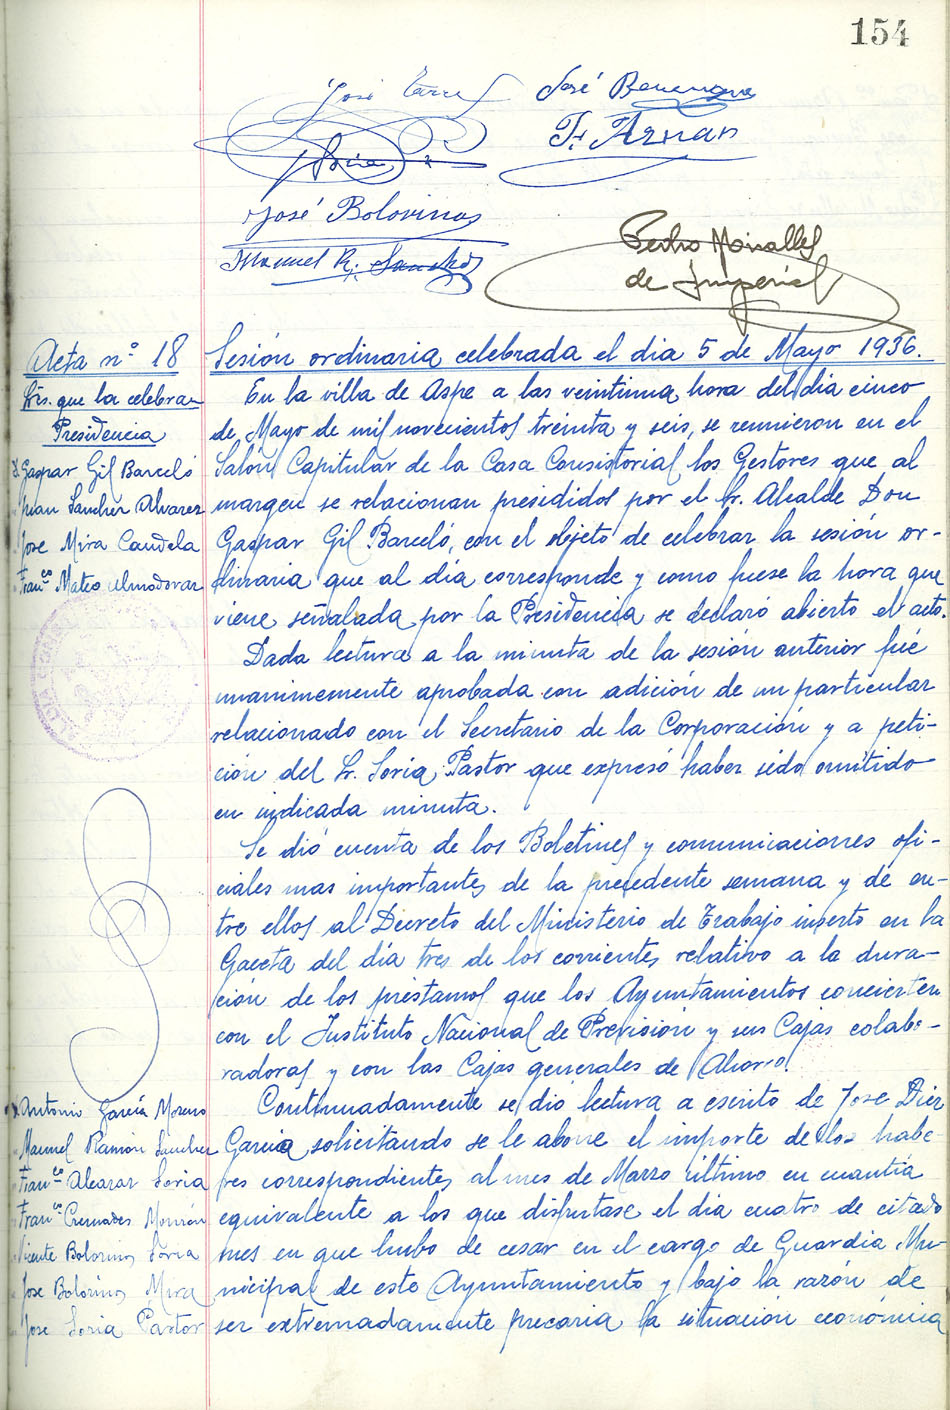 154
José
José
F. Aznar
José Bolorinos
Manuel R. Sánchez
Pedro Miralles
de Imperial
Acta nº 18
Sres. que la celebran
Presidencia
Gaspar Gil Barceló
Juan Sánchez Alvarez
Jose Mira Candela
Franco Mateo Almodovar
Sesión ordinaria celebrada el dia 5 de Mayo 1936.
En la villa de Aspe a las veintiuna hora del dia cinco
de Mayo de mil novecientos treinta y seis, se reunieron en el
Salón Capitular de la Casa Consistorial los Gestores que al
margen se relacionan presididos por el Sr. Alcalde Don
Gaspar Gil Barceló, con el objeto de celebrar la sesión or-
dinaria que al dia corresponde y como fuese la hora que
viene señalada por la Presidencia se declaró abierto el acto.
Dada lectura a la minuta de la sesión anterior fué
unanimemente aprobada con adición de un particular
relacionado con el Secretario de la Corporación y a peti-
ción del Sr. Soria Pastor que expresó haber sido omitido
en indicada minuta.
Se dió cuenta de los Boletines y comunicaciones ofi-
ciales mas importantes de la precedente semana y de en-
tre ellos al Decreto del Ministerio de Trabajo inserto en la
Gaceta del día tres de los corrientes relativo a la dura-
ción de los préstamos que los Ayuntamientos concierten
con el Instituto Nacional de Previsión y sus Cajas colabo-
radoras y con las Cajas generales de Ahorro.
Continuadamente se dió lectura a escrito de Jose Diez
Garcia solicitando se le abone el importe de los habe-
res correspondientes al mes de Marzo último en cuantía
equivalente a los que disfrutase el dia cuatro de citado
mes en que hubo de cesar en el cargo de Guardia Mu-
nicipal de este Ayuntamiento y bajo la razón de
ser extremadamente precaria la situación económica
Antonio García Moreno
Manuel Ramón Sanchez
Franco Alcaraz Soria
Franco Cremades Monzón
Vicente Bolorinos Soria
Jose Bolorinos Mira
Jose Soria Pastor